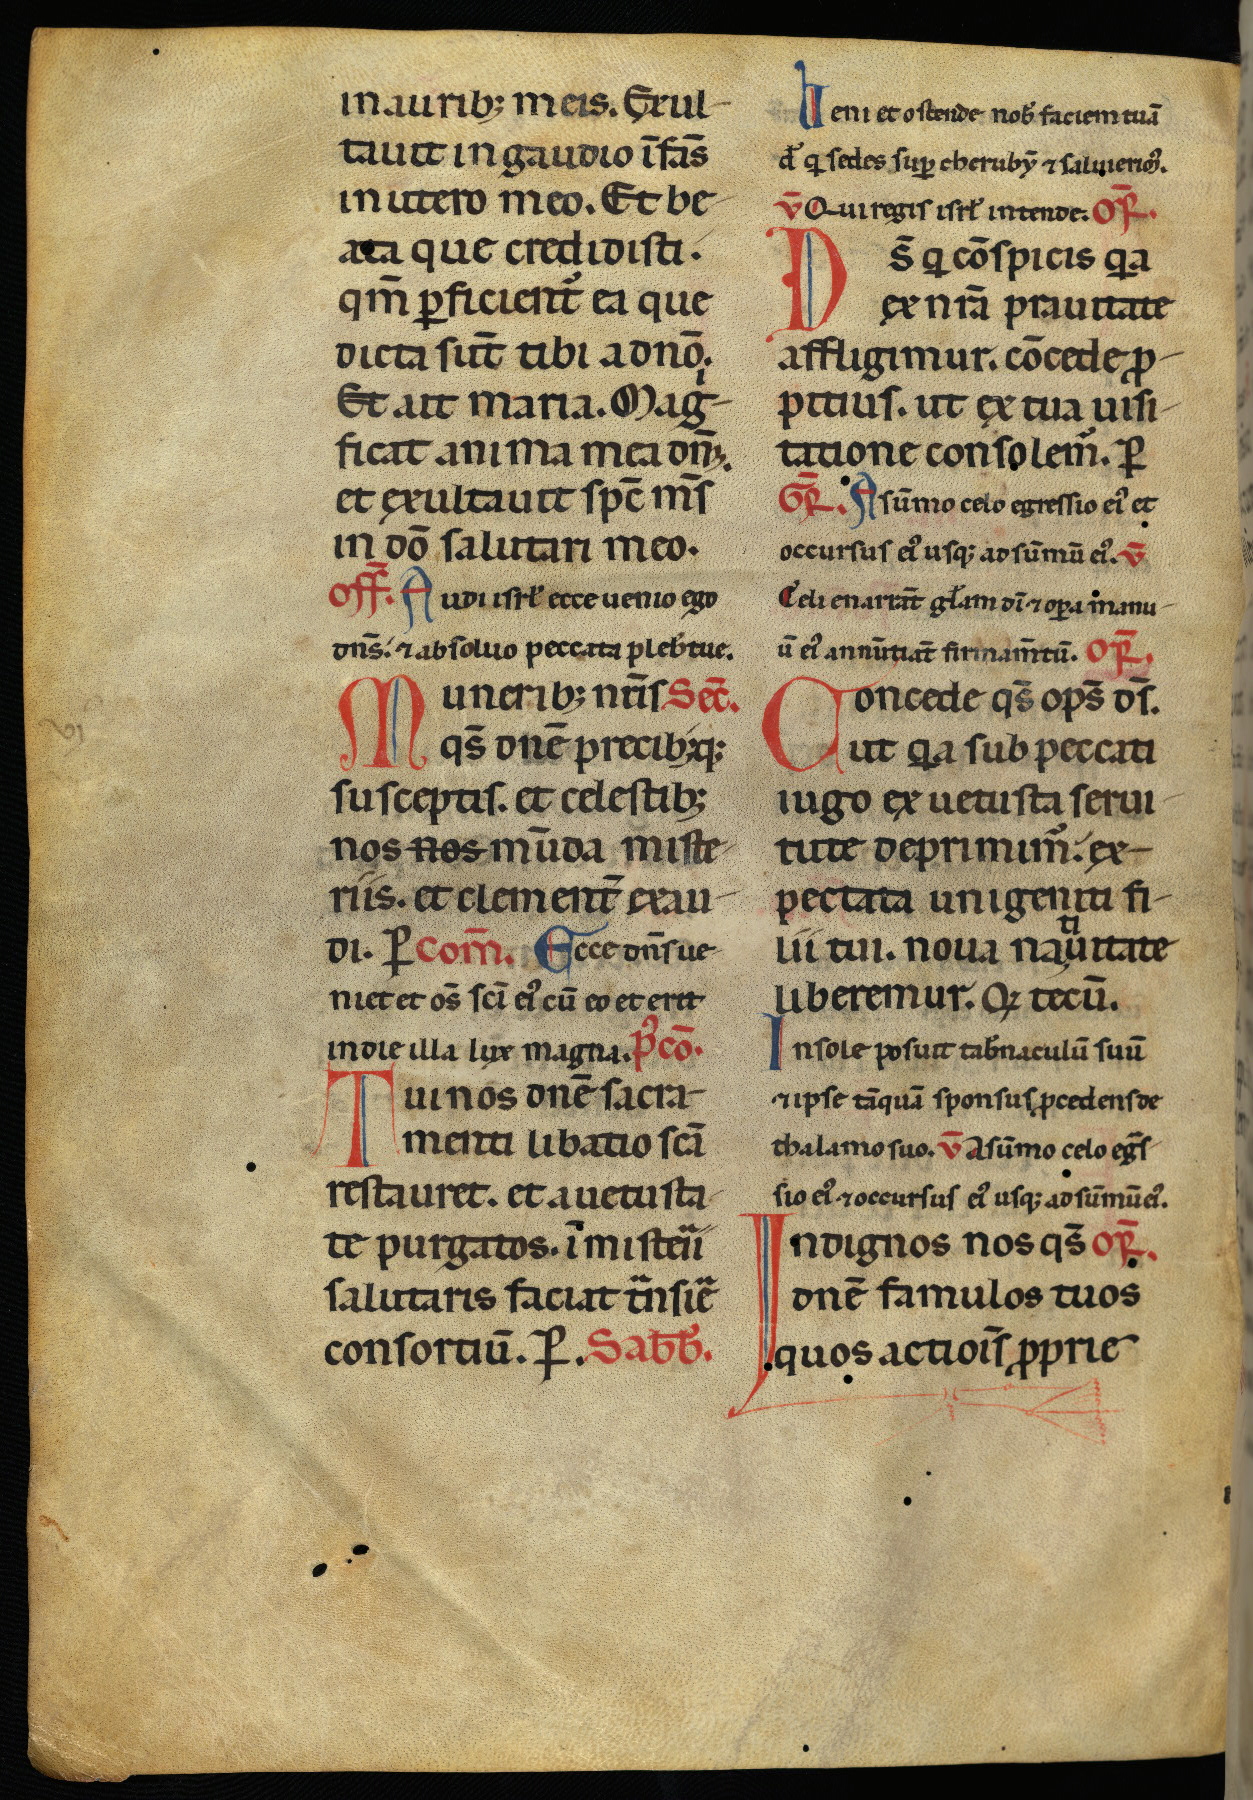 in aurib; meis. Exul-
tauit in gaudio ĩfãs
in utero meo. Et be-
ata que credidisti.
qm̃ ꝑficient᷑ ea que
dicta sũt tibi a dnõ.
Et ait maria. Magͥ-
ficat anima mea dñm.
et exultauit spc̃ m̃s
in dõ salutari meo.
Off̃. Audi isrl̃ ecce uenio ego
dñs. ⁊ absoluo peccata pleb̃ tue.
Munerib; nr̃is Sec̃.
qs̃ dnẽ precib;q;
susceptis. et celestib;
nos nos mũda miste-
riis. et clement᷑ exau-
di. P̱ Com̃. Ecce dñs ue-
niet et om̃s sc̃i eiꝰ cũ eo et erit
in die illa lux magna. P̃ cõ.
Tui nos dnẽ sacra-
menti libatio sc̃a
restauret. et a uetusta-
te purgatos. ĩ misterii
salutaris faciat tͣnsir̃e
consortiũ. P̱. Sabb̃.
Ueni et ostende nob̃ faciem tuã
dñe q̃ sedes suꝑ cherubỹ ⁊ salui erimꝰ.
v̄ Qui regis isrl̃ intende. Or̃.
Ds̃ q̃ cõspicis qͥa
ex nr̃a prauitate
affligimur. cõcede ꝓ-
pitius. ut ex tua uisi-
tatione consolem᷑. P̱
Gr̃. A sũmo celo egressio eiꝰ et
occursus eiꝰ usq; ad sũmũ eiꝰ. v̄
Celi enarrãt gl̃am dĩ ⁊ oꝑa manu-
ũ eiꝰ annũtiat̃ firmam̃tũ. Or̃.
Concede qs̃ op̃s ds̃.
ut qͥa sub peccati
iugo ex uetusta serui-
tute deprimim᷑. ex-
pectata unigeniti fi-
lii tui. noua natiuitate
liberemur. Q̃ tecũ.
In sole posuit tab̃naculũ suũ
⁊ ipse tãquã sponsus ꝓcedens de
thalamo suo. v̄ A sũmo celo egr̃s-
sio eiꝰ ⁊ occursus eiꝰ usq; ad sũmũ eiꝰ.
Indignos nos qs̃ Or̃.
dnẽ famulos tuos
quos actiõis ꝓprie